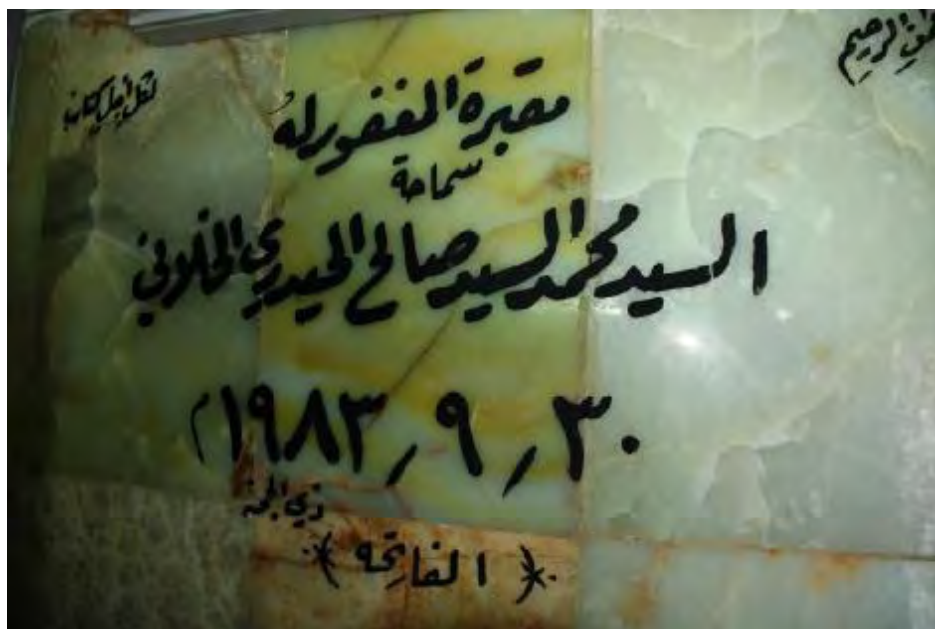 الرحيم
لكل أجل كتاب
مقبرة المغفور له
سماحة
السيد محمد السيد صالح الحيدري الخلاني
٣٠ / ٩ / ١٩٨٣ م
ذي الحجة
* الفاتحة *